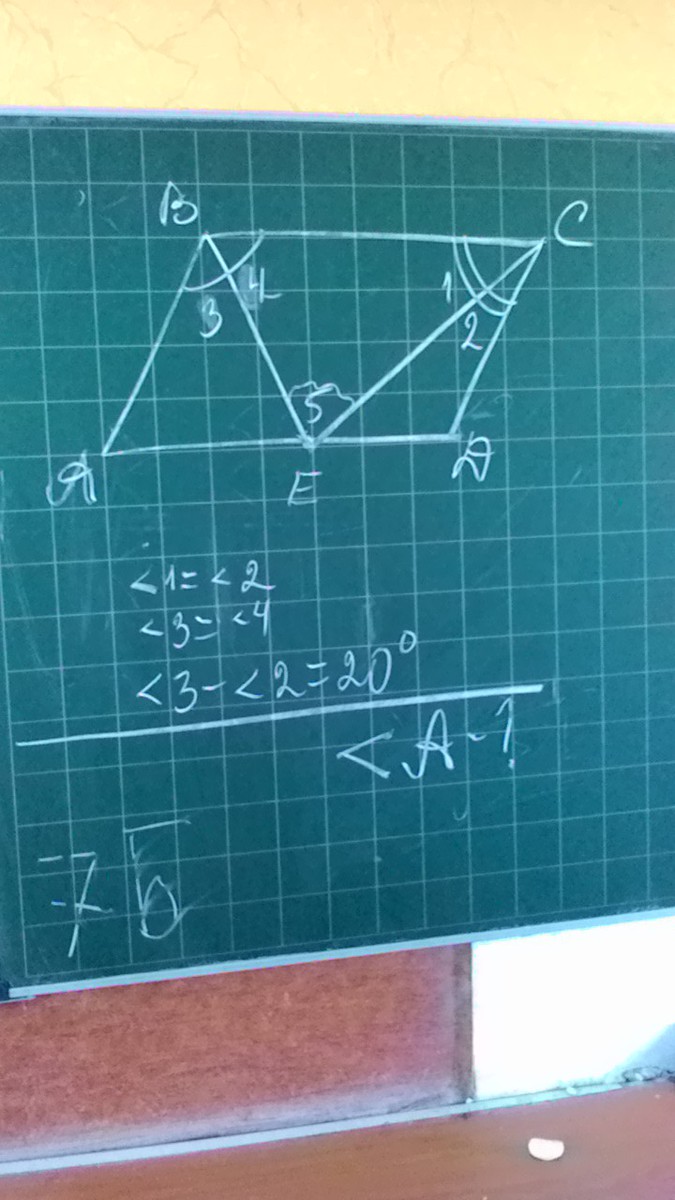 B C
3 4 1 2
5
A E D
<1=<2
<3=<4
<3-<2=20°
<A-?
7Б